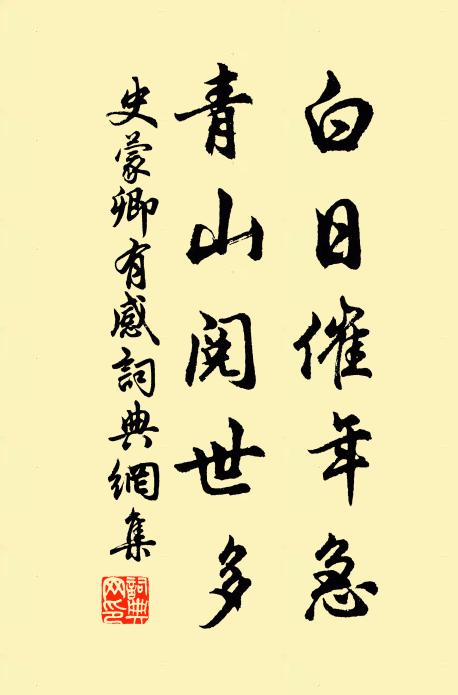 白日催年急
青山閱世多
史蒙卿有感詞典網集
詞典網印